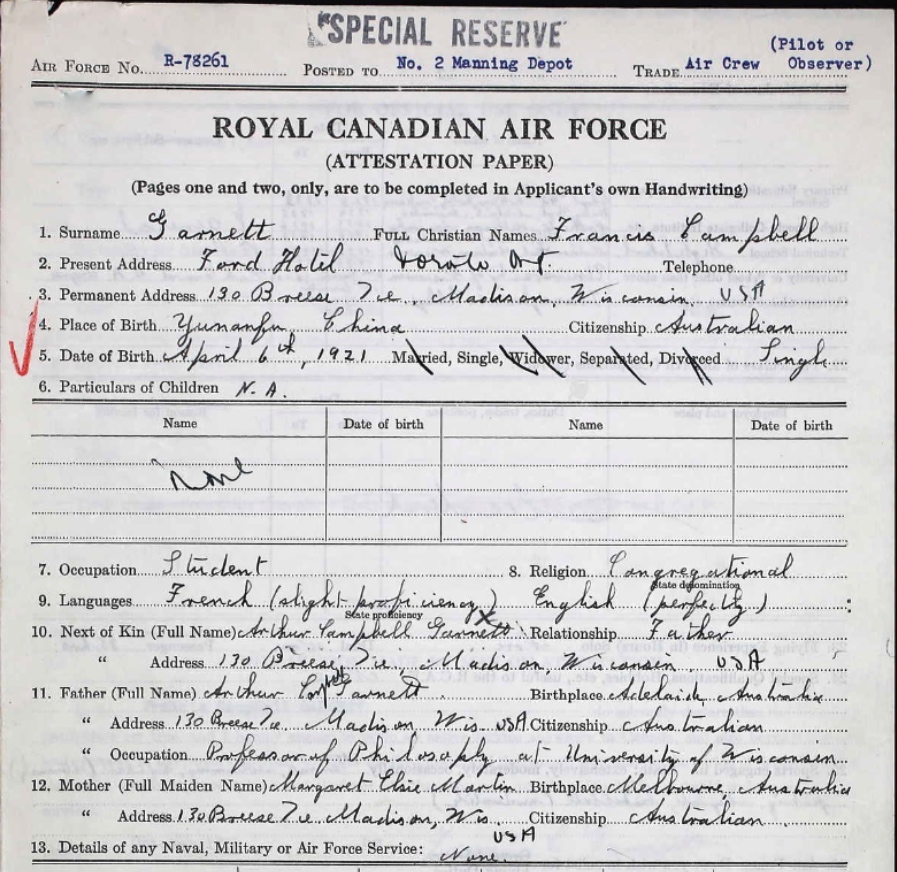 SPECIAL RESERVE
(Pilot or
AIR FORCE No. R-78261 POSTED TO No. 2 Manning Depot TRADE Air Crew Observer)
ROYAL CANADIAN AIR FORCE
(ATTESTATION PAPER)
(Pages one and two, only, are to be completed in Applicant's own Handwriting)
1. Surname Garnett FULL Christian Names Francis Campbell
2. Present Address Ford Hotel Toronto Ont. Telephone
3. Permanent Address 130 Breese Tce, Madison, Wisconsin, USA
4. Place of Birth Yunanfu, China Citizenship Australian
5. Date of Birth April 6th, 1921 Married, Single, Widower, Separated, Divorced Single
6. Particulars of Children N. A.
Name Date of birth Name Date of birth
None
7. Occupation Student 8. Religion Congregational
State denomination
9. Languages French (slight proficiency) English (perfectly)
State proficiency
10. Next of Kin (Full Name) Arthur Campbell Garnett Relationship Father
" Address 130 Breese Tce, Madison, Wisconsin, USA
11. Father (Full Name) Arthur Garnett Birthplace Adelaide, Australia
" Address 130 Breese Tce Madison, Wis. USA Citizenship Australian
" Occupation Professor of Philosophy at University of Wisconsin
12. Mother (Full Maiden Name) Margaret Elsie Martin Birthplace Melbourne, Australia
" Address 130 Breese Tce Madison, Wis. Citizenship Australian
USA
13. Details of any Naval, Military or Air Force Service: None.